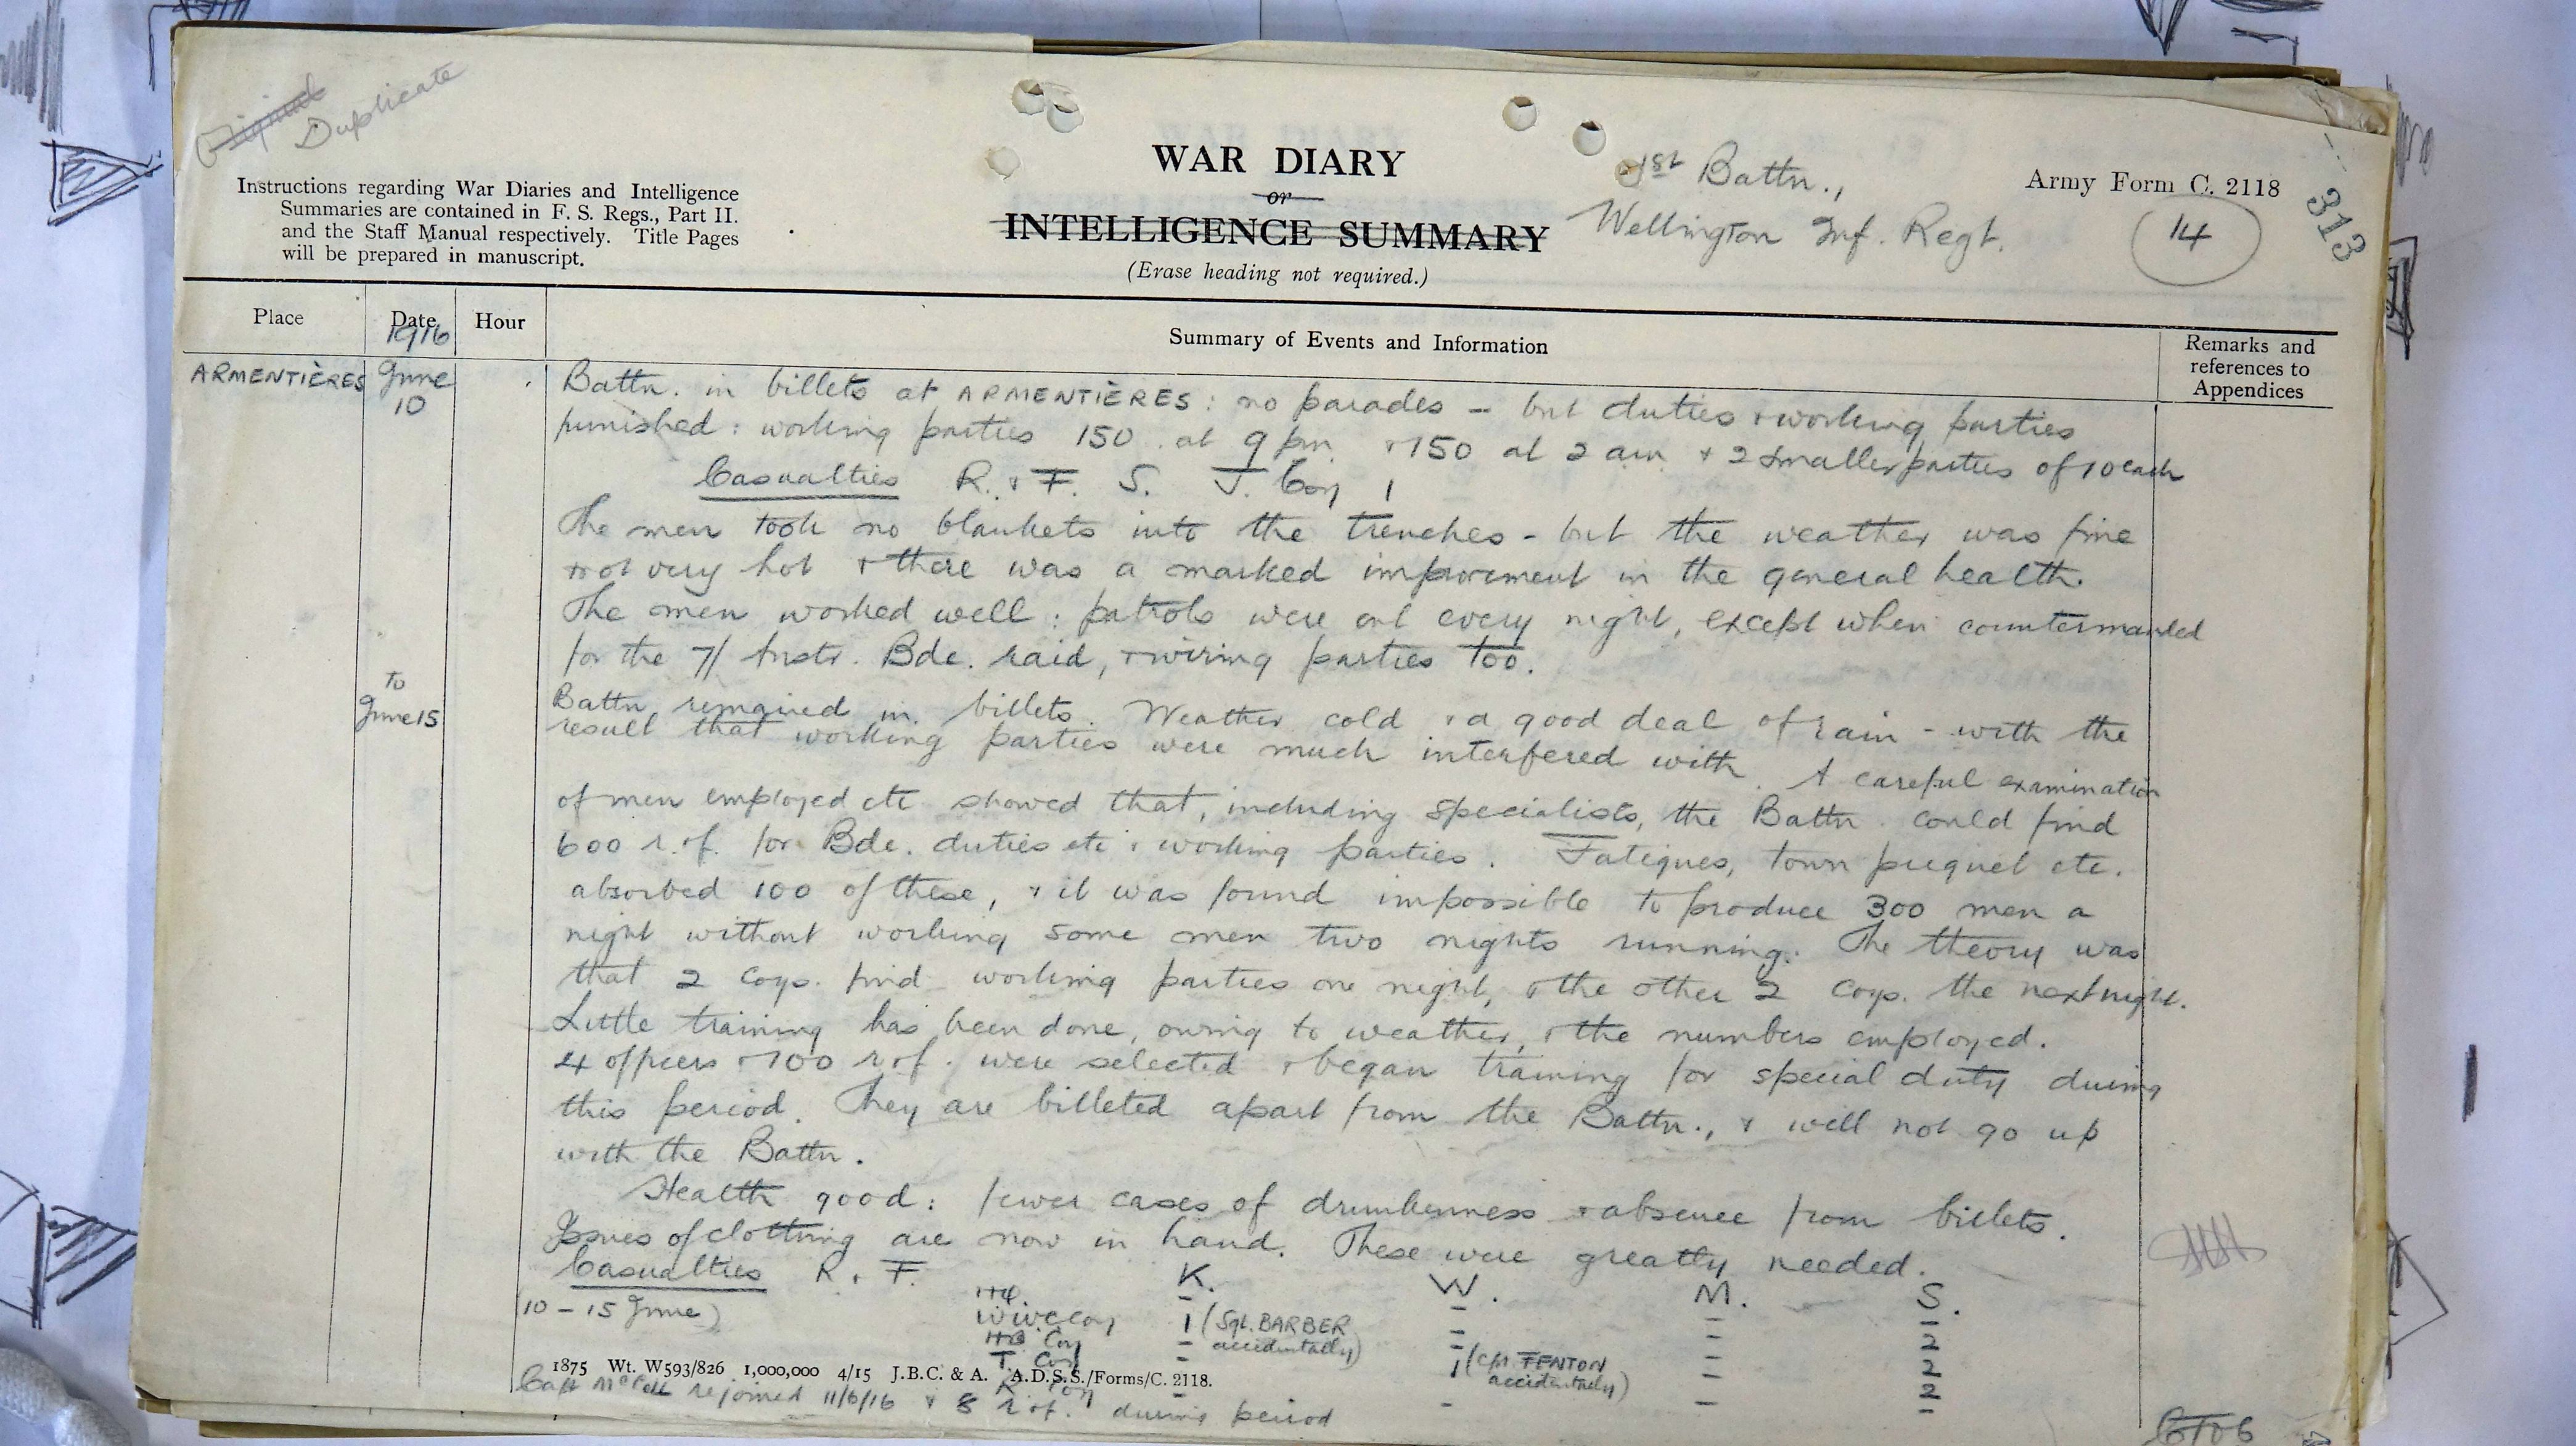 Original Duplicate
Instructions regarding War Diaries and Intelligence
Summaries are contained in F. S. Regs., Part II.
and the Staff Manual respectively. Title Pages
will be prepared in manuscript.
WAR DIARY
or
INTELLIGENCE SUMMARY
(Erase heading not required.)
1st Battn.,
Wellington Inf. Regt.
Army Form C. 2118
14
313
Place Date Hour Summary of Events and Information Remarks and references to Appendices
1916
ARMENTIÈRES June 10 Battn. in billets at ARMENTIÈRES: no parades - but duties & working parties
furnished: working parties 150 at 9 pm & 150 at 2 am & 2 smaller parties of 10 each
Casualties R. & F. S. J. Coy 1
The men took no blankets into the trenches - but the weather was fine
not very hot & there was a marked improvement in the general health.
The men worked well: patrols were out every night, except when countermanded
for the 7/ Austr. Bde. raid, & wiring parties too.
to June 15 Battn remained in billets. Weather cold & a good deal of rain - with the
result that working parties were much interfered with. A careful examination
of men employed etc showed that, including specialists, the Battn. could find
600 r. & f. for Bde. duties etc & working parties. Fatigues, town picquet etc.
absorbed 100 of these, & it was found impossible to produce 300 men a
night without working some men two nights running. The theory was
that 2 Coys. find working parties one night, & the other 2 Coys. the next night.
Little training has been done, owing to weather, & the numbers employed.
4 officers & 100 r & f. were selected & began training for special duty during
this period. They are billeted apart from the Battn., & will not go up
with the Battn.
Health good: fewer cases of drunkenness & absence from billets.
Issues of clothing are now in hand. These were greatly needed.
Casualties R. & F. K. W. M. S.
(10 - 15 June) HQ. - - - -
WWC Coy 1 (Sgt. BARBER accidentally) - - 2
HB Coy - - - 2
T. Coy - 1 (Cpl FENTON accidentally) - 2
R. Coy - - - -
1875 Wt. W593/826 1,000,000 4/15 J.B.C. & A. A.D.S.S./Forms/C. 2118.
Capt rejoined 11/6/16 & 8 r. & f. during period